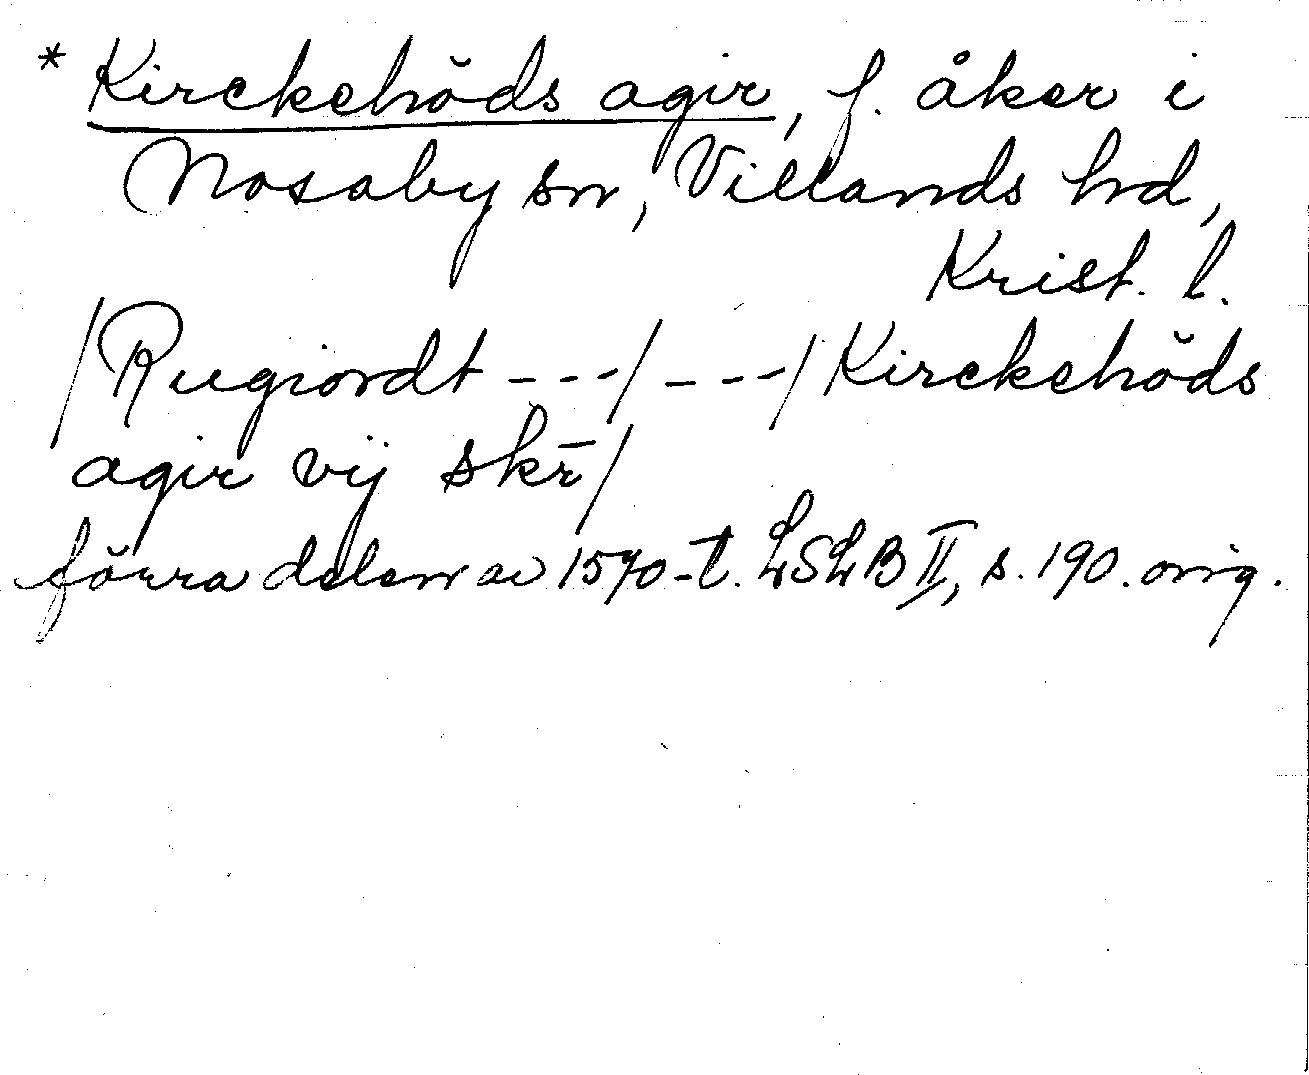 * Kirckehöds agir, f. åker i
Nosaby sn, Villands hd,
Krist. l.
/Rugiordt ---/ ---/Kirckehöds
agir vij skr̄/
förra delen av 1570-t. LSLB II, s. 190. orig.